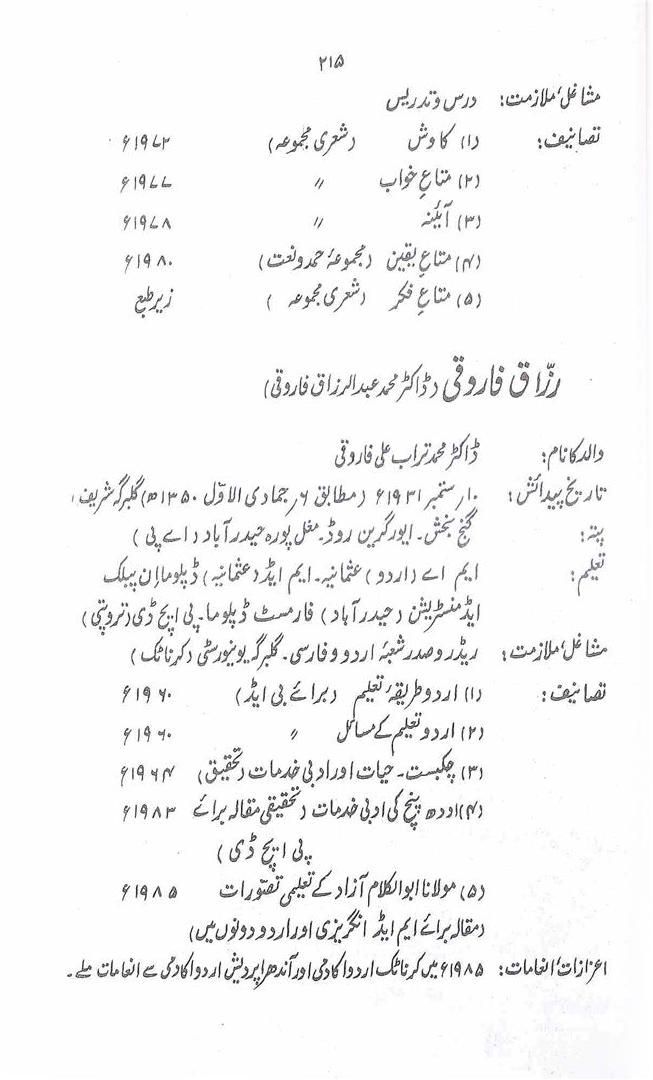 ۲۱۵
مشاغل، ملازمت: درس و تدریس
تصانیف: (۱) کاوش (شعری مجموعہ) ۱۹۷۲ء
(۲) متاعِ خواب 〃 ۱۹۷۷ء
(۳) آئینہ 〃 ۱۹۷۸ء
(۴) متاعِ یقین (مجموعۂ حمد و نعت) ۱۹۸۰ء
(۵) متاعِ فکر (شعری مجموعہ) زیرِ طبع
رزّاق فاروقی (ڈاکٹر محمد عبدالرزاق فاروقی)
والد کا نام: ڈاکٹر محمد تراب علی فاروقی
تاریخ پیدائش: ۱۰ر ستمبر ۱۹۳۱ء (مطابق ۶ر جمادی الاوّل ۱۳۵۰ھ) گلبرگہ شریف
پتہ: گنج بخش۔ ایورگرین روڈ۔ مغل پورہ حیدرآباد (اے پی)
تعلیم: ایم اے (اردو) عثمانیہ۔ ایم ایڈ (عثمانیہ) ڈپلوما ان پبلک
ایڈمنسٹریشن (حیدرآباد) فارمسٹ ڈپلوما۔ پی ایچ ڈی (تروپتی)
مشاغل، ملازمت: ریڈر و صدر شعبۂ اردو و فارسی۔ گلبرگہ یونیورسٹی (کرناٹک)
تصانیف: (۱) اردو طریقۂ تعلیم (برائے بی ایڈ) ۱۹۶۰ء
(۲) اردو تعلیم کے مسائل 〃 ۱۹۶۰ء
(۳) چکبست۔ حیات اور ادبی خدمات (تحقیق) ۱۹۶۴ء
(۴) اودھ پنچ کی ادبی خدمات (تحقیقی مقالہ برائے ۱۹۸۳ء
پی ایچ ڈی)
(۵) مولانا ابوالکلام آزاد کے تعلیمی تصّورات ۱۹۸۵ء
(مقالہ برائے ایم ایڈ انگریزی اور اردو دونوں میں)
اعزازات، انعامات: ۱۹۸۵ء میں کرناٹک اردو اکادمی اور آندھرا پردیش اردو اکادمی سے انعامات ملے۔